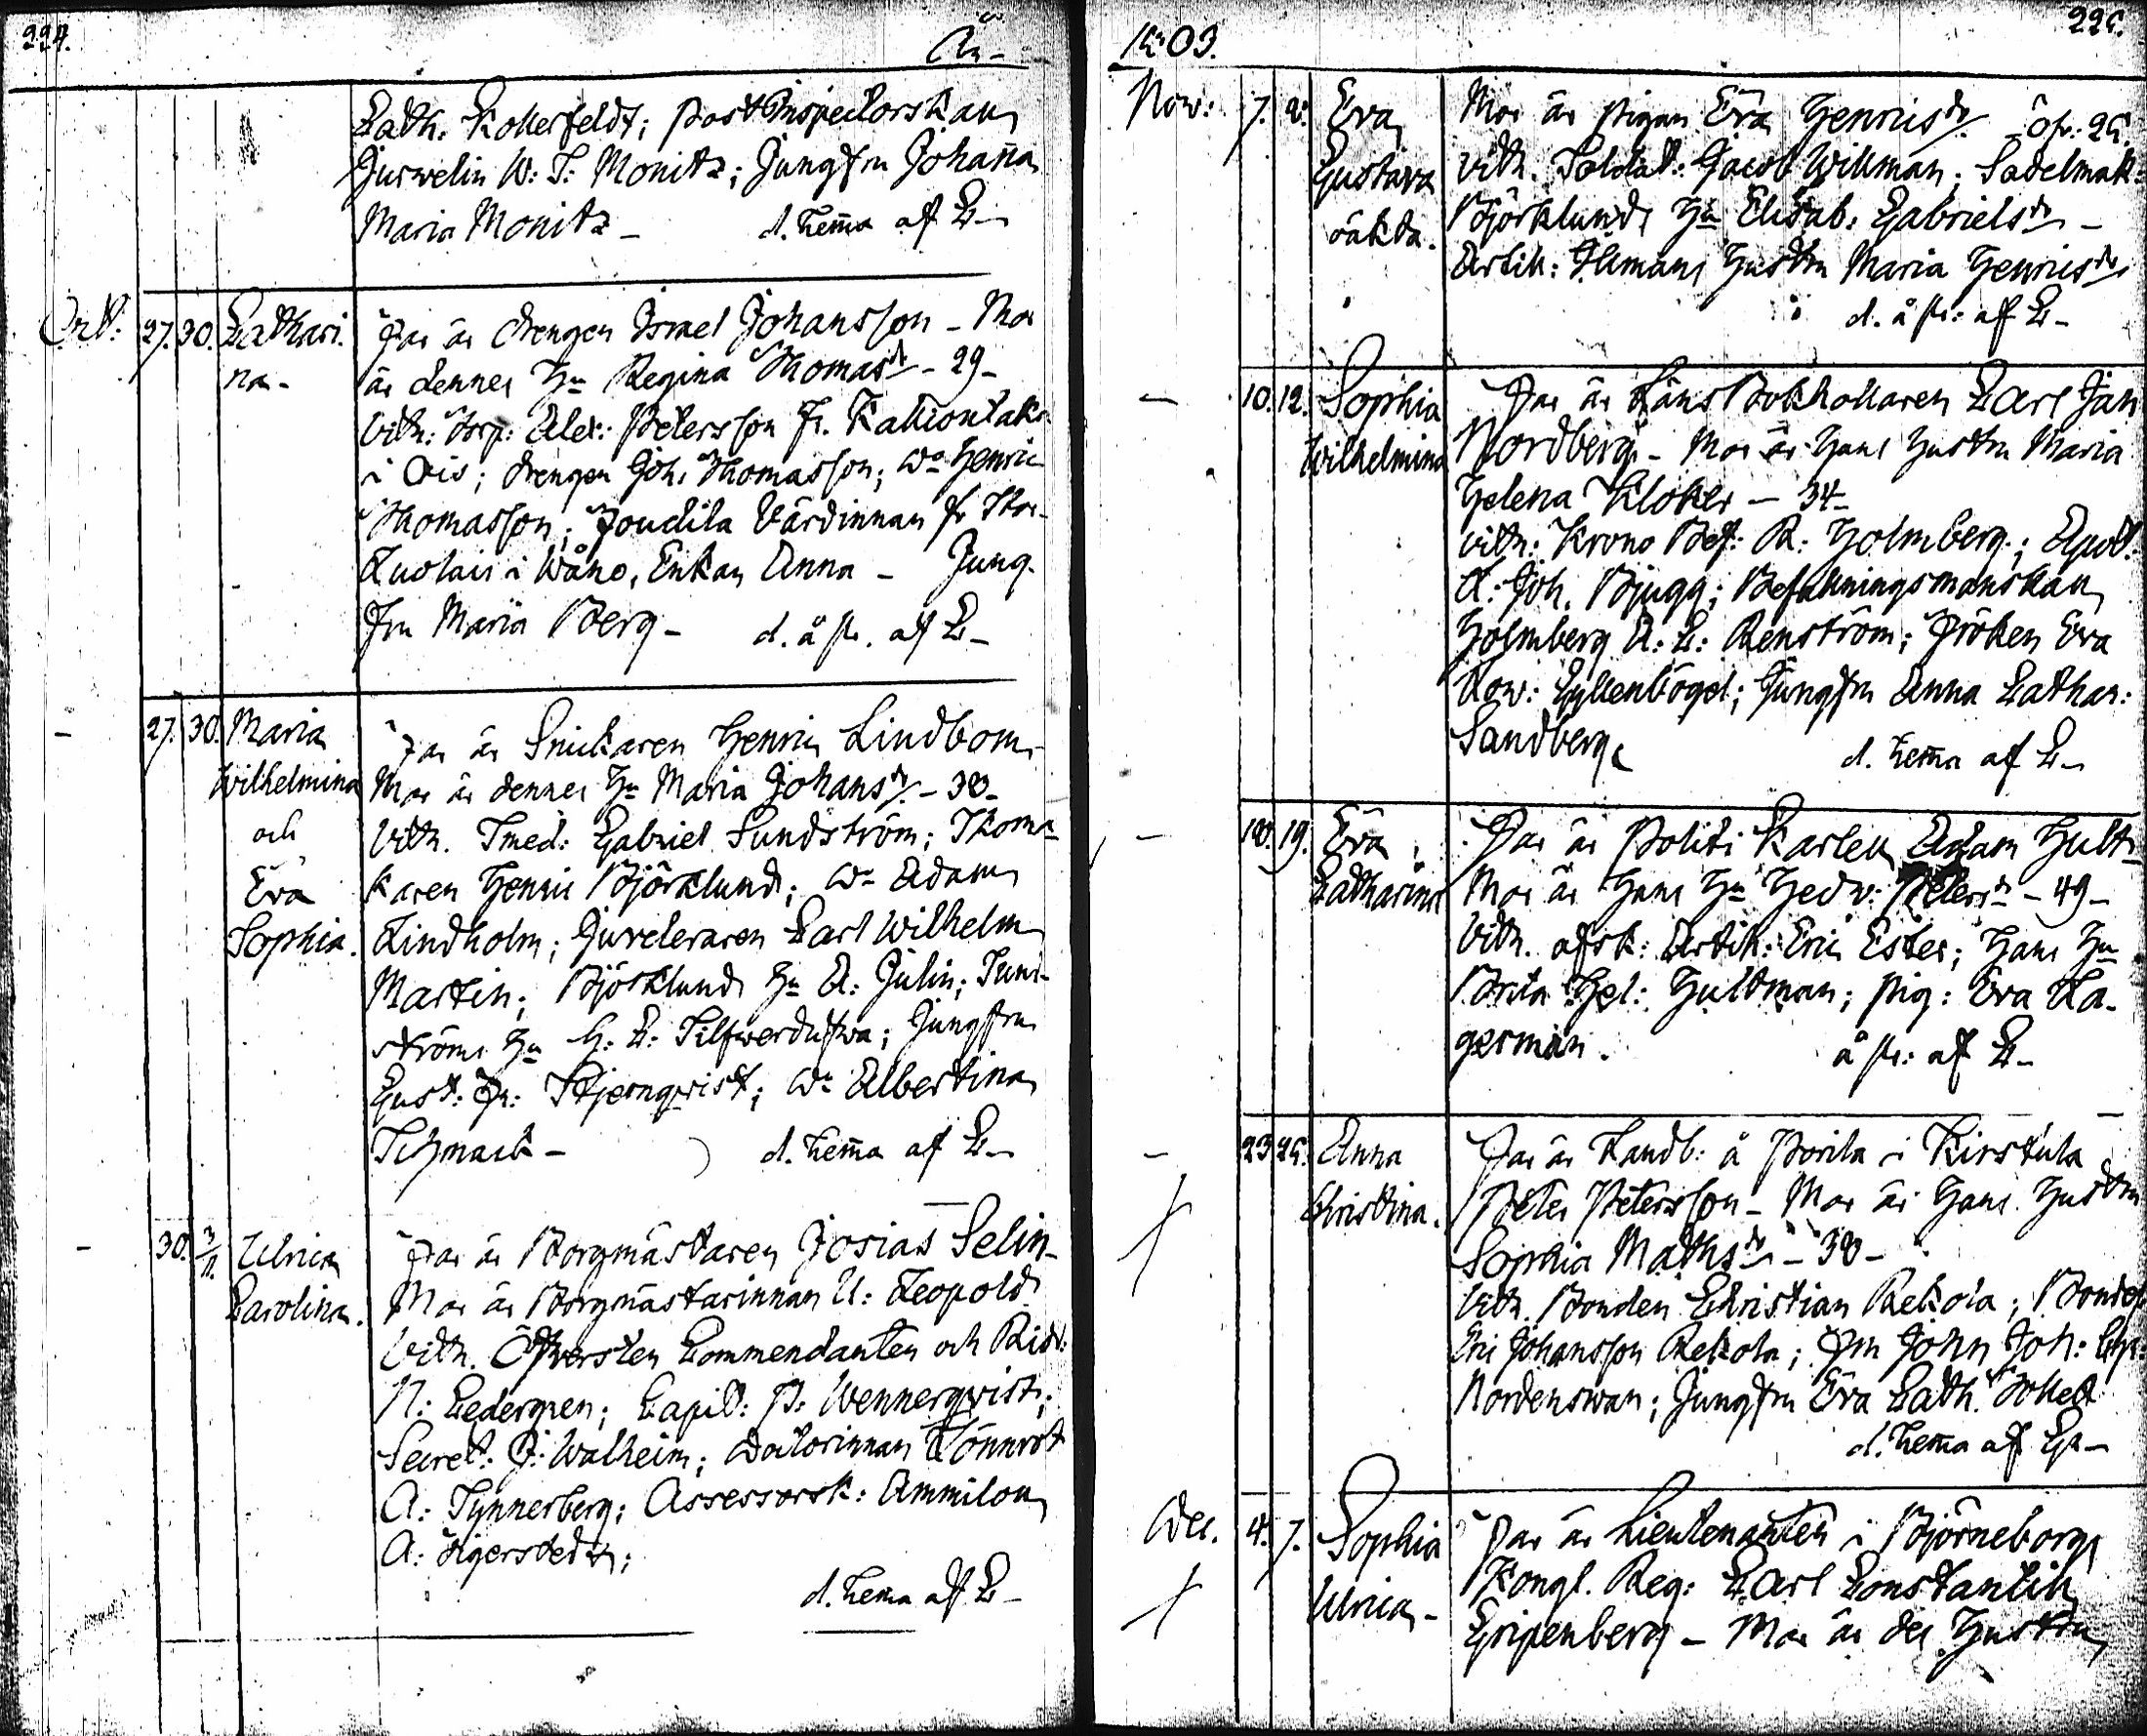 224.
År
Cath. Kollerfeldt; postInspectorskan
Gurvelin W: S: Monitz; Jungfru Johanna
Maria Monitz _ d. hema af C_
Oct: 27. 30. Cathari-
na-
Far är drengen Ismael Johansson - Mor
är dennes Hu Regina Thomasdr - 29_
Vitn: Torp: Alex: Petersson fr. Kalliontaka
i Ois; drengen Joh. Thomasson; do Henric
Thomasson; Joudila Värdinnan fr
Luolais i Wåno, Enkan Anna - Jung-
fru Maria Berg - d. å pr. af C_
27. 30. Maria
Wilhelmina
och
Eva
Sophia.
Far är Snickaren Henric Lindbom-
Mor är dennes Hu Maria Johansdr - 38_
Vitn. Smed: Gabriel Sundström; Skoma-
karen Henric Björklund; do Adam
Lindholm; Juveleraren Carl Wilhelm
Martin; Björklunds Hu A: Julin; Sund-
ströms Hu C: Silfwerdufwa; Jungfru
Gust: Fr: Stjernqvist; do Albertina
Schmack - d. hema af C_
30. 3/11. Ulrica
Carolina.
Far är Borgmästaren Josias Selin-
Mor är Borgmästarinnan U: Leopold
Vitn. Öfversten Commendanten och Ridd:
N: Cedergren; Capit: P: Wennerqvist;
Secret: J: Walheim; Doctorinnan Lönnrot
A: Synnerberg; Assessorsk: Ammilon
A: Ågerstedt;
d. hema af C_
1803.
225.
Nov: 7. 8. Eva
Gustava
oäkta.
Mor är pigan Eva Henricsdr. - ör. 25.
Vitn. Soldat: Jacob Wikman; Sadelmak:
Björklunds Hu Elisab: Gabrielsdr -
Artik: Ilmans Hustru Maria Henricsdr
d. å pr: af C_
10. 12. Sophia
Wilhelmina
Far är LänsBokhollaren Carl Joh
Nordberg - Mor är Hans Hustru Maria
Helena Kloker - 34_
Vitn: Krono Bef: R: Holmberg; Apot:
A: Joh. Bjugg; Befallningsmanskan
Holmberg A: C: Renström; Fröken Eva
Lov: Gyllenbögel; Jungfru Anna Cathar:
Sandberg d. hema af C_
18. 19. Eva
Catharina
Far är Politi Karlen Adam Hult-
Mor är Hans Hu Hedv: Petersdr - 49_
Vitn. afsk: Artik: Eric Ester; Hans Hu
Brita Hel: Hultman; pig: Eva La-
german. å pr: af C_
23. 25. Anna
Christina.
Far är Landb: å Porila i Kirstula
Peter Petersson - Mor är Hans Hustru
Sophia Mathsdr - 38_
Vitn. Bonden Christian Rekola; Bondes:
Eric Johansson Rekola; Fru John Joh: Chr:
Nordenswan; Jungfru Eva Cath. Tollet
d. hema af
Dec. 4. 7. Sophia
Ulrica -
Far är Lieutenanten i Björneborgs
Kongl. Reg: Carl Constantin
Gripenberg - Mor är des Hustru